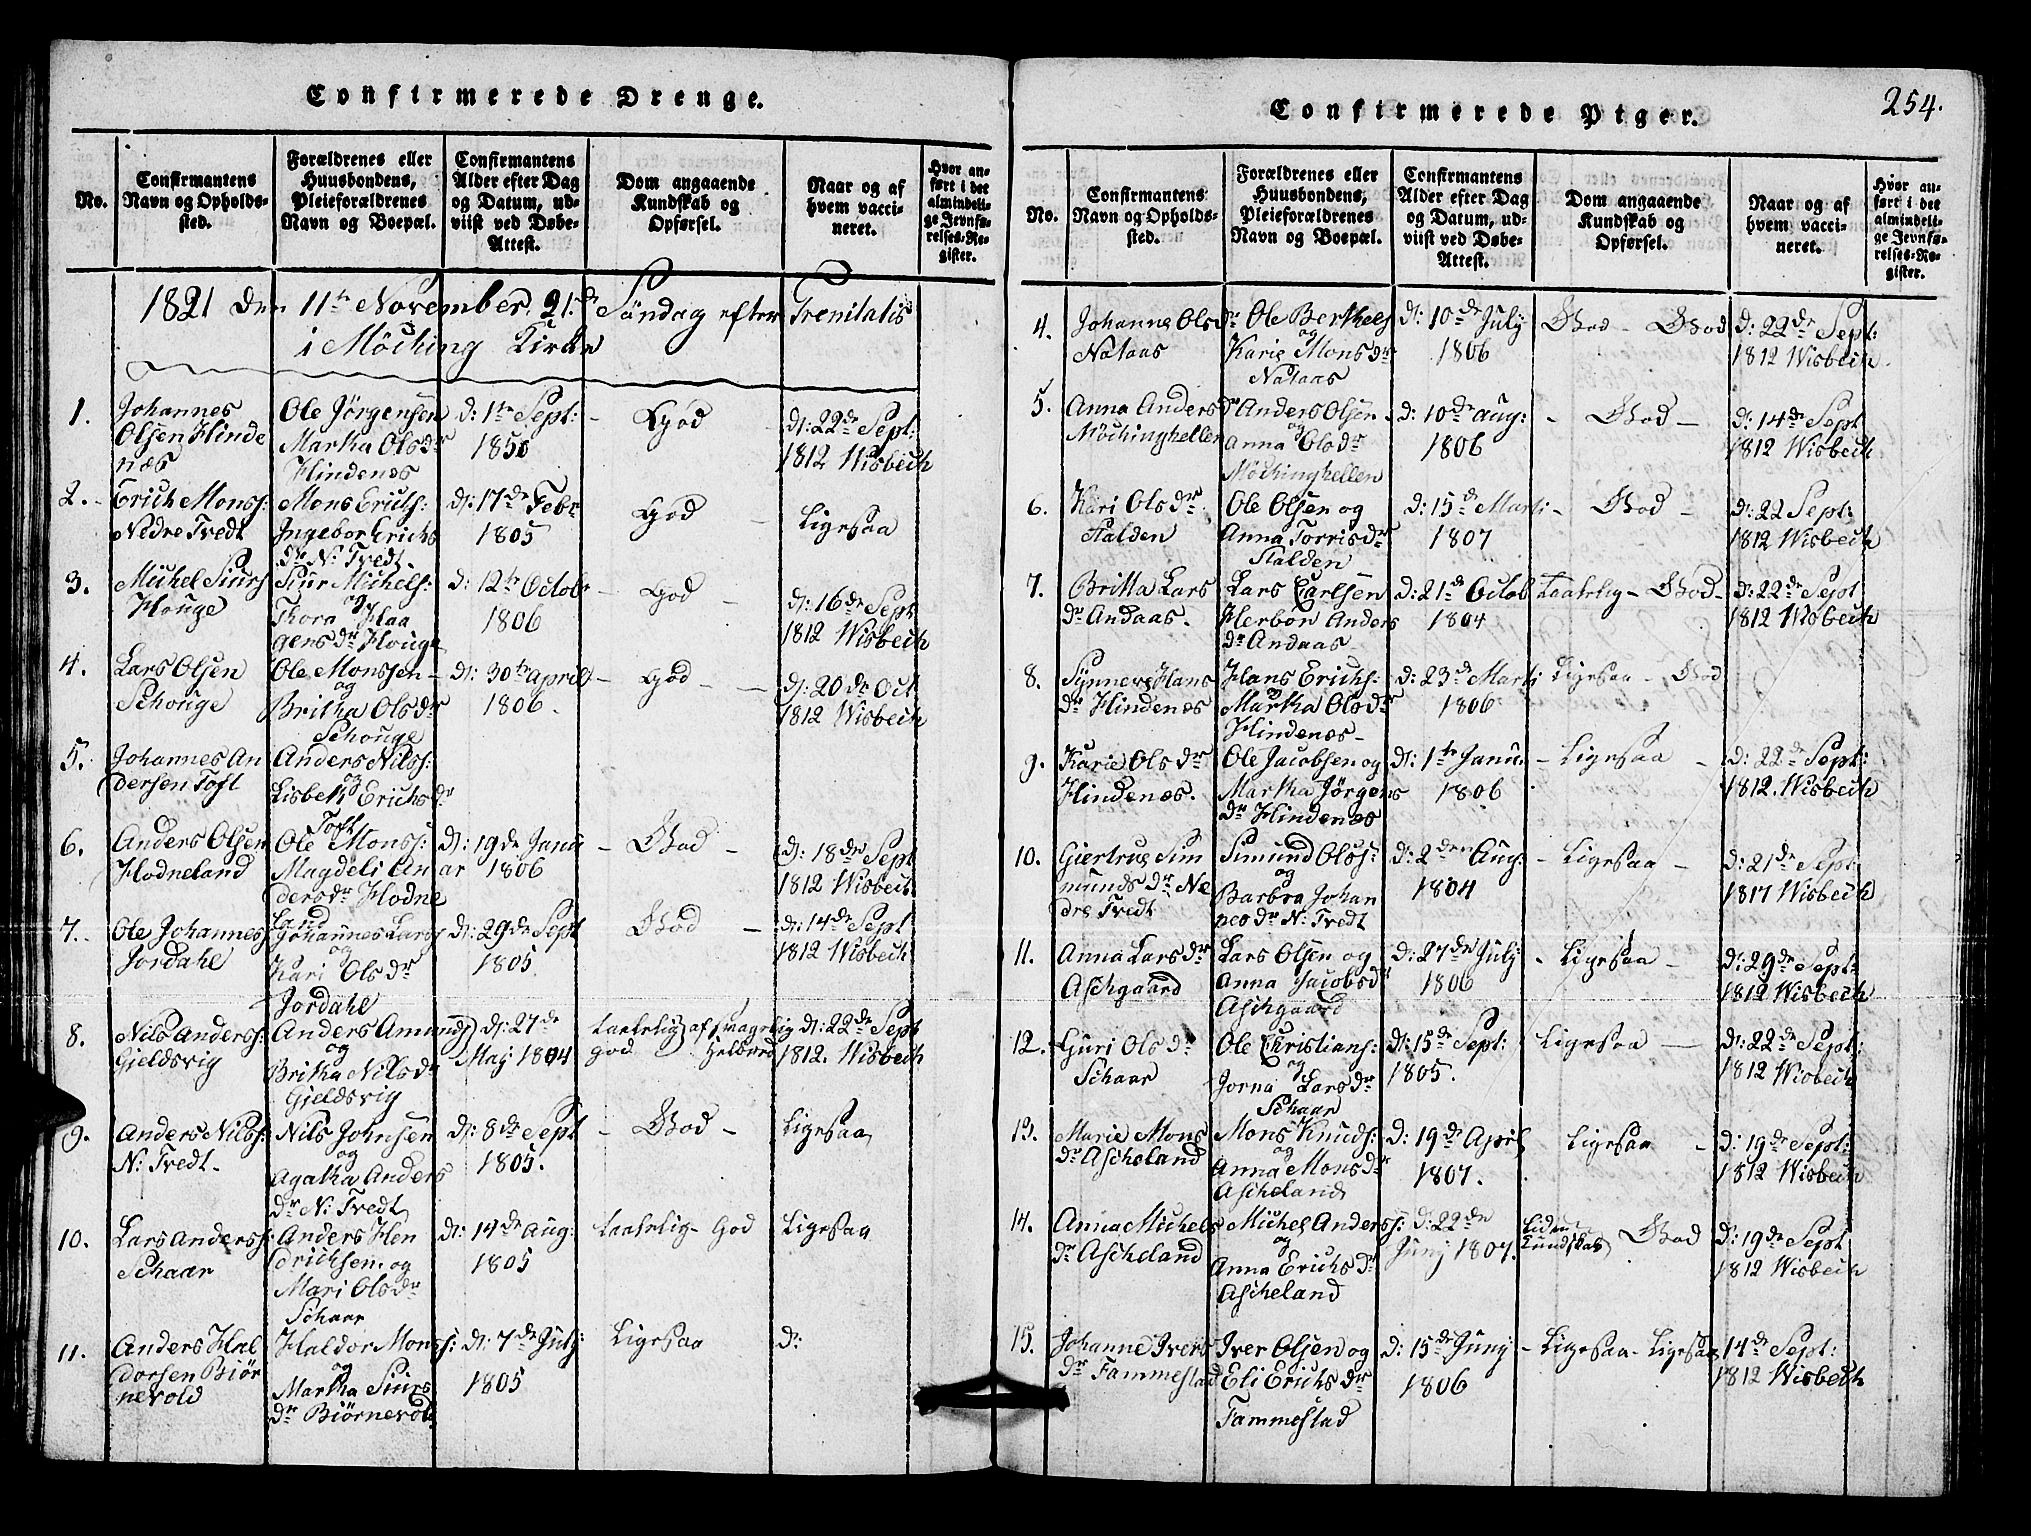 Confirmerede Drenge.
No.
Confirmantens
Navn og Opholds-
sted.
Forældrenes eller
Huusbondens,
Pleieforældrenes
Navn og Boepæl.
Confirmantens
Alder efter Dag
og Datum, ud-
viist ved Døbe-
Attest.
Dom angaaende
Kundskab og
Opførsel.
Naar og af
hvem vacci-
neret.
Hvor an-
ført i det
almindeli-
ge Jevnfø-
relses-Re-
gister.
1821 den 11te November, 21.de Søndag efter Trenitatis
i Möching Kirke
1.
Johannes
Olsen Hinde
næs
Ole Jørgensen
Martha Olsdr
Hindenæs
d: 1te Sept:
God
d: 22de Sept:
1812 Wisbech
2.
Erich Monss:
Nedre Tvedt
Mons Erichs:
Ingebor Erichs
dr N: Tvedt
d: 17de Febr
1805
God
Ligesaa
3.
Michel Siurs
Houge
Siur Michels:
og
Thora Haa
gensdr Houge
d: 12te Octobr
1806
God
d: 16de Sept
1812 Wisbech
4.
Lars Olsen
Schouge
Ole Monssen
og
Britha Olsdr
Schouge
d: 30te April
1806.
God
d: 20de Oct
1812 Wisbech
5.
Johannes An
dersen Toft
Anders Nilss:
og
Lisbeth Erichsdr
Toft
6.
Anders Olsen
Hodneland
Ole Monss:
Magdeli An
dersdr Hodne
land
d: 19de Janu
ar 1806
God
d: 18de Sept
1812 Wisbech
7.
Ole Johannes
Jordahl
Johannes Larss
og
Kari Olsdr
Jordahl
d: 29de Sept
1805
God
d: 14de Sept
1812 Wisbech
8.
Nils Anderss:
Gjeldsvig
Anders Amunds
og
Britha Nilsdr
Gjeldsvig
d: 27de
Maj 1804
Taalelig af Svagelig
god Helbred
d: 22de Sept
1812. Wisbech
9.
Anders Nilss:
N: Tvedt
Nils Johnsen
og
Agatha Anders
dr N: Tvedt
d: 8de Sept
1805.
God
Ligesaa
10.
Lars Anderss:
Schaar
Anders Hen
drichsen og
Mari Olsdr
Schaar
d: 14de Aug:
1805
Taalelig God
Ligesaa
11.
Anders Hal
dorsen Biör
nevold
Haldor Monss:
og
Martha Siurs
dr Biörnevol
d: 7de July
1805
Ligesaa
d:
Confirmerede Piger.
254.
No.
Confirmantens
Navn og Opholds-
sted.
Forældrenes eller
Huusbondens,
Pleieforældrenes
Navn og Boepæl.
Confirmantens
Alder efter Dag
og Datum, ud-
viist ved Døbe-
Attest.
Dom angaaende
Kundskab og
Opførsel.
Naar og af
hvem vacci-
neret.
Hvor an-
ført i det
almindeli-
ge Jevnfø-
relses-Re-
gister.
4.
Johanne Olsdr
Nataas
Ole Berthels
og
Karie Monsdr
Nataas
d: 10de July
1806
God - God
d: 22de Sept:
1812 Wisbech.
5.
Anna Andersdr
Möchinghellen
Anders Olsen
og
Anna Olsdr
Möchinghellen
d: 10de Aug:
1806
God
d: 14de Sept
1812 Wisbech
6.
Kari Olsdr
Halden
Ole Olsen og
Anna Torrisdr
Halden
d: 15de Mart:
1807
God
d: 22 Sept:
1812 Wisbech
7.
Britta Lars
dr Andaas.
Lars Carlsen
Herbor Anders
dr Andaas
d: 21de Octob
1804
Taalelig - God
d: 22de Sept
1812 Wisbech
8.
Synneve Hans
dr Hindenæs
Hans Erichs:
og
Martha Olsdr
Hindenæs
d: 23de Marti
1806
Ligesaa - God
9.
Karie Olsdr
Hindenæs.
Ole Jacobsen og
Martha Jørgens
dr Hindenæs
d: 1te Janu.
1806
Ligesaa
d: 22de Sept:
1812. Wisbech
10.
Giertrue Sim
mundsdr Ne
dre Tvedt
Simund Olss:
og
Barbra Johan
nesdr N: Tvedt
d: 2den Aug:
1804
Ligesaa
d: 21de Sept:
1817 Wisbech
11.
Anna Larsdr
Aschgaard
Lars Olsen og
Anna Jacobsdr
Aschgaard
d: 27de July
1806
Ligesaa
d: 29de Sept:
1812 Wisbech
12.
Guri Olsdr
Schaar
Ole Christians:
og
Jorna Larsdr
Schaar
d: 15de Sept:
1805.
Ligesaa
d: 22de Sept:
1812 Wisbech
13.
Marie Mons
dr Ascheland
Mons Knuds:
og
Anna Monsdr
Ascheland
d: 19de April
1807.
Ligesaa
d: 19de Sept:
1812 Wisbech
14.
Anna Michels
dr Ascheland
Michel Anderss:
og
Anna Erichsdr
Ascheland
d: 22de
Juny 1807.
Liden
Kundskab God
d: 19de Sept
1812 Wisbech
15.
Johanne Ivers
dr Fammestad
Iver Olsen og
Eli Erichsdr
Fammestad
d: 15de Juny
1806
Ligesaa - Ligesaa
14de Sept:
1812 Wisbech